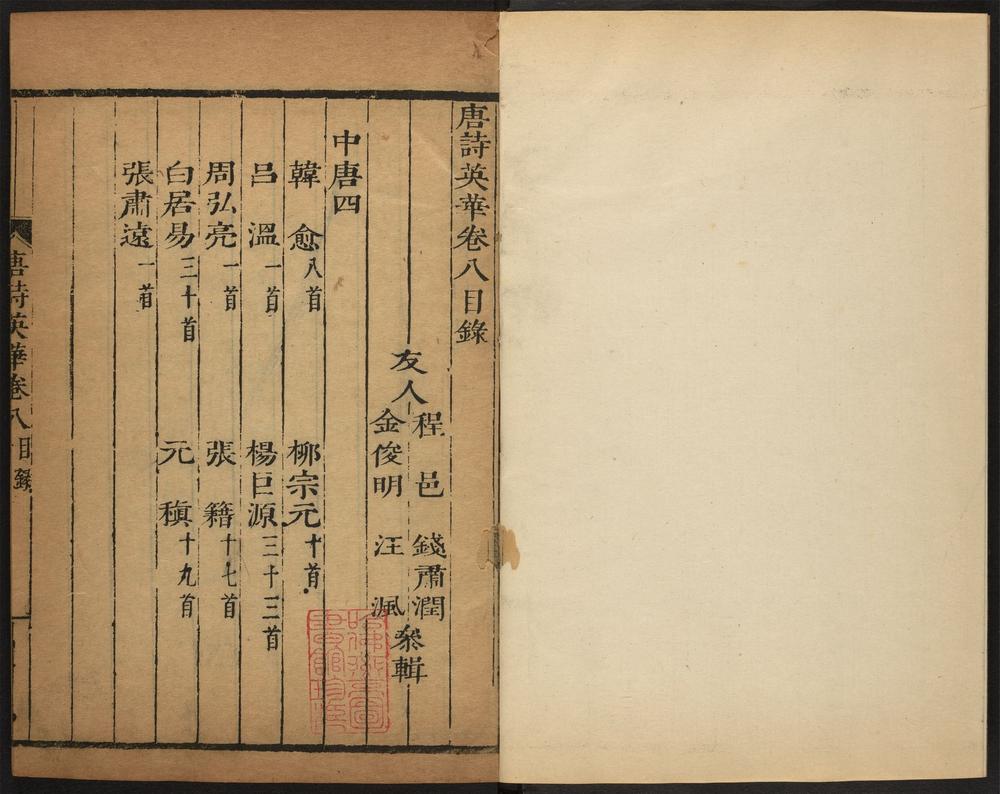 唐詩英華卷八目錄
友人
程邑 錢肅潤
金俊明 汪渢
叅輯
中唐四
韓愈八首 柳宗元十首
呂溫一首 楊巨源三十三首
周弘亮一首 張籍十七首
白居易三十首 元稹十九首
張肅遠一首
唐詩英華卷八目錄